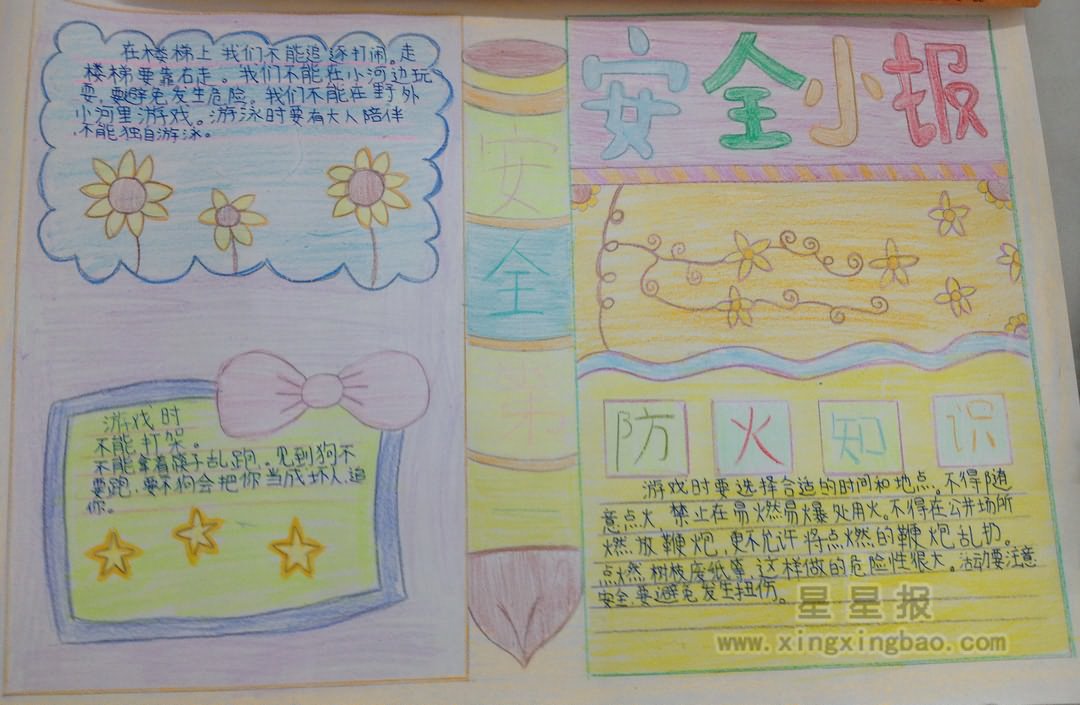 在楼梯上 我们不能追逐打闹。走
楼梯要靠右走。我们不能在小河边玩
耍,要避免发生危险。我们不能在野外
小河里游戏。游泳时要有大人陪伴
不能独自游泳。
游戏时
不能打架。
不能拿着筷子乱跑,见到狗不
要跑,要不狗会把你当成坏人,追
你。
安
全
第
一
安全小报
防火知识
游戏时要选择合适的时间和地点。不得随
意点火,禁止在易燃易爆处用火。不得在公共场所
燃放鞭炮,更不允许将点燃的鞭炮乱扔。
点燃树枝废纸等,这样做的危险性很大。活动要注意
安全,要避免发生扭伤。
星星报
www.xingxingbao.com